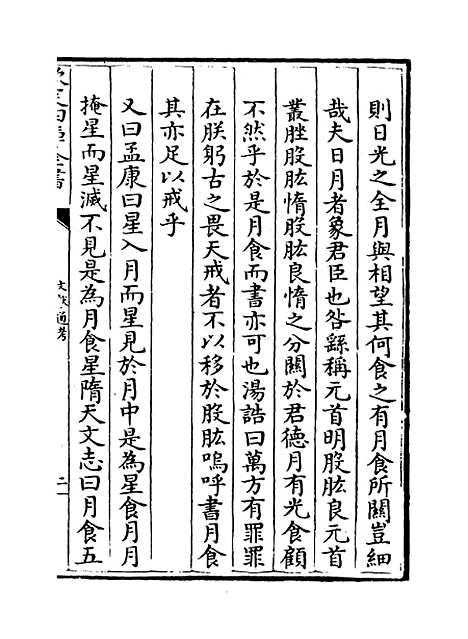 則日光之全月與相望其何食之有月食所關豈細
哉夫日月者象君臣也咎繇稱元首明股肱良元首
叢脞股肱惰股肱良惰之分關於君德月有光食顧
不然乎於是月食而書亦可也湯誥曰萬方有罪罪
在朕躬古之畏天戒者不以移於股肱嗚呼書月食
其亦足以戒乎
又曰孟康曰星入月而星見於月中是為星食月月
掩星而星滅不見是為月食星隋天文志曰月食五
欽定四庫全書
文獻通考